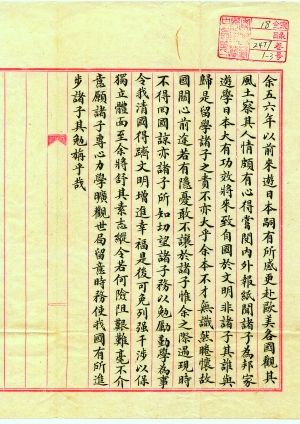 余五六年以前來遊日本嗣有所感更赴歐美各國觀其
風土察其人情頗有心得嘗閱內外報紙聞諸子為邦家
遊學日本大有功效將來致自國於文明非諸子其誰與
歸是留學諸子之責不亦大乎余本不才無識然睠懷故
國關心前途若有隱憂敢不讓於諸子惟余之際過現時
不得回國亦諸子所知切望諸子務以勉勵勤學為事
令我清國得躋文明增進幸福是後可免列强干涉以保
獨立體面至余將舒其素志縱令若何險阻艱難毫不介
意願諸子專心力學曠觀世局留意時務使我國有所進
步諸子其勉旃乎哉